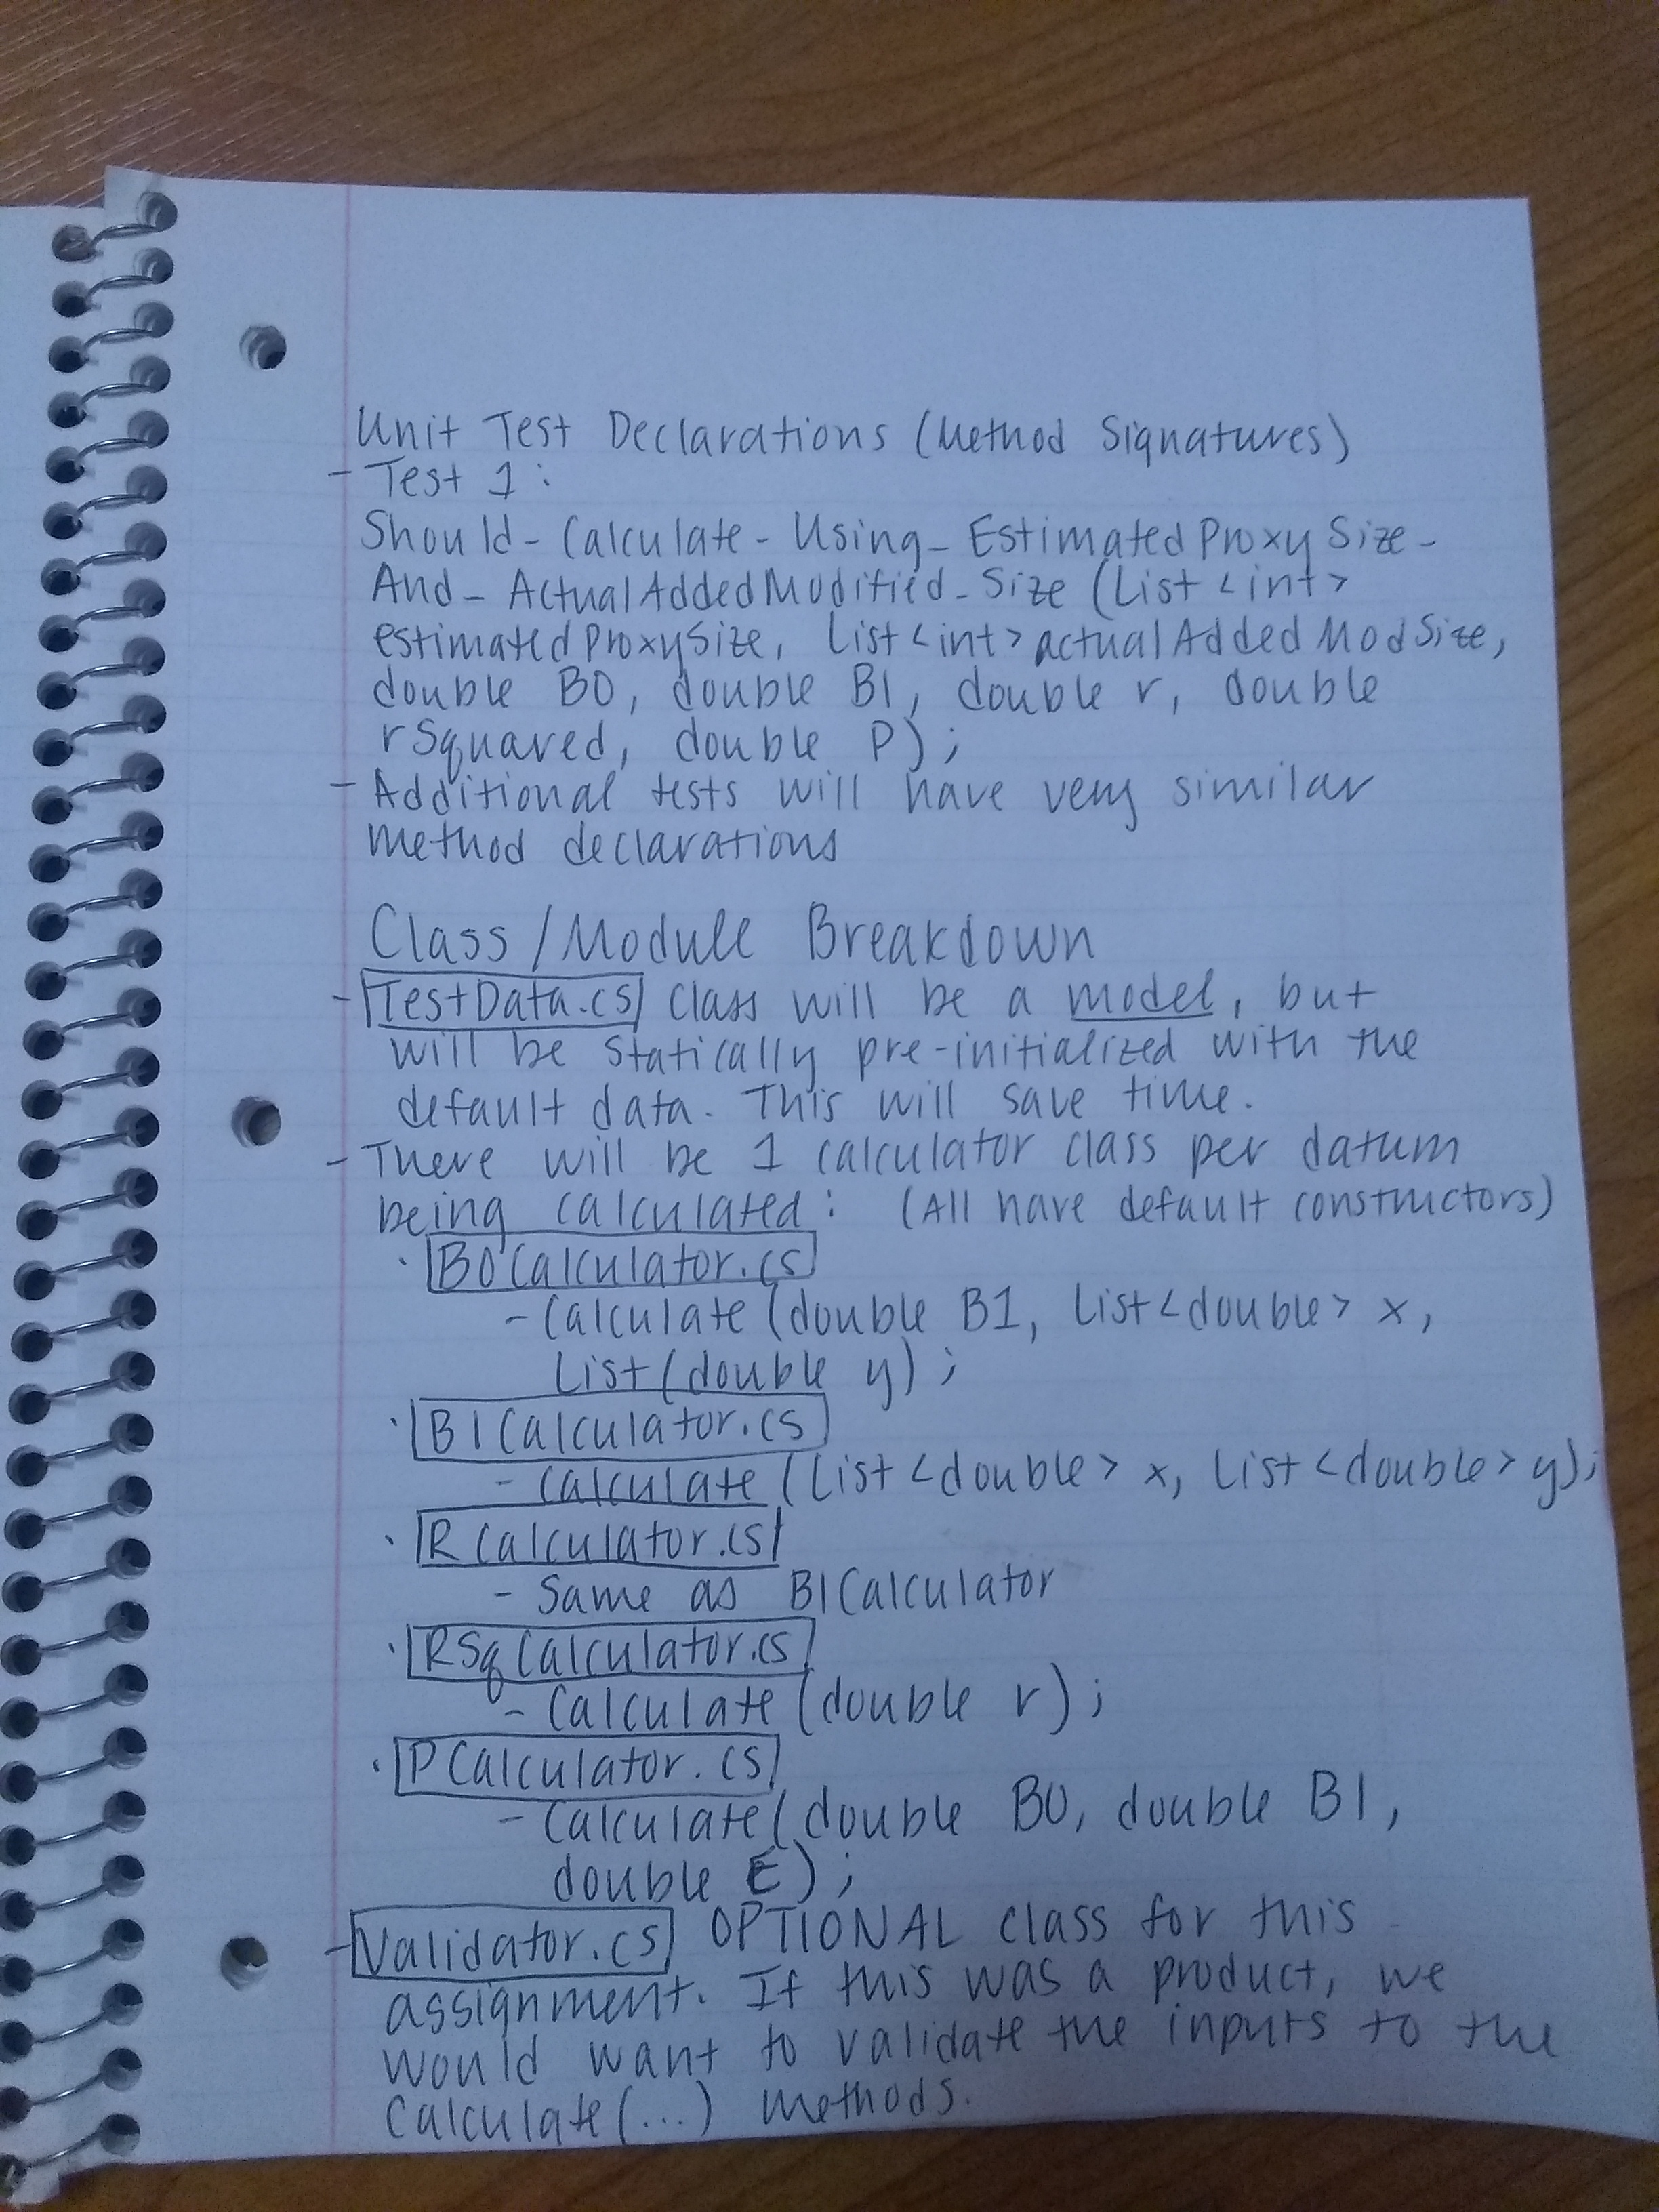 Unit Test Declarations (Method Signatures)
- Test 1:
Should_Calculate_Using_EstimatedProxySize_
And_ActualAddedModified_Size (List<int>
estimatedProxySize, List<int> actualAddedModSize,
double B0, double B1, double r, double
rSquared, double P);
- Additional tests will have very similar
method declarations
Class/Module Breakdown
- TestData.cs class will be a model, but
will be statically pre-initialized with the
default data. This will save time.
- There will be 1 calculator class per datum
being calculated: (All have default constructors)
· B0Calculator.cs
- Calculate (double B1, List<double> x,
List(double y);
· B1Calculator.cs
- Calculate (List<double> x, List<double> y);
· RCalculator.cs
- Same as B1Calculator
· RSqCalculator.cs
- Calculate (double r);
· PCalculator.cs
- Calculate (double B0, double B1,
double E);
- Validator.cs OPTIONAL class for this
assignment. If this was a product, we
would want to validate the inputs to the
Calculate(...) methods.